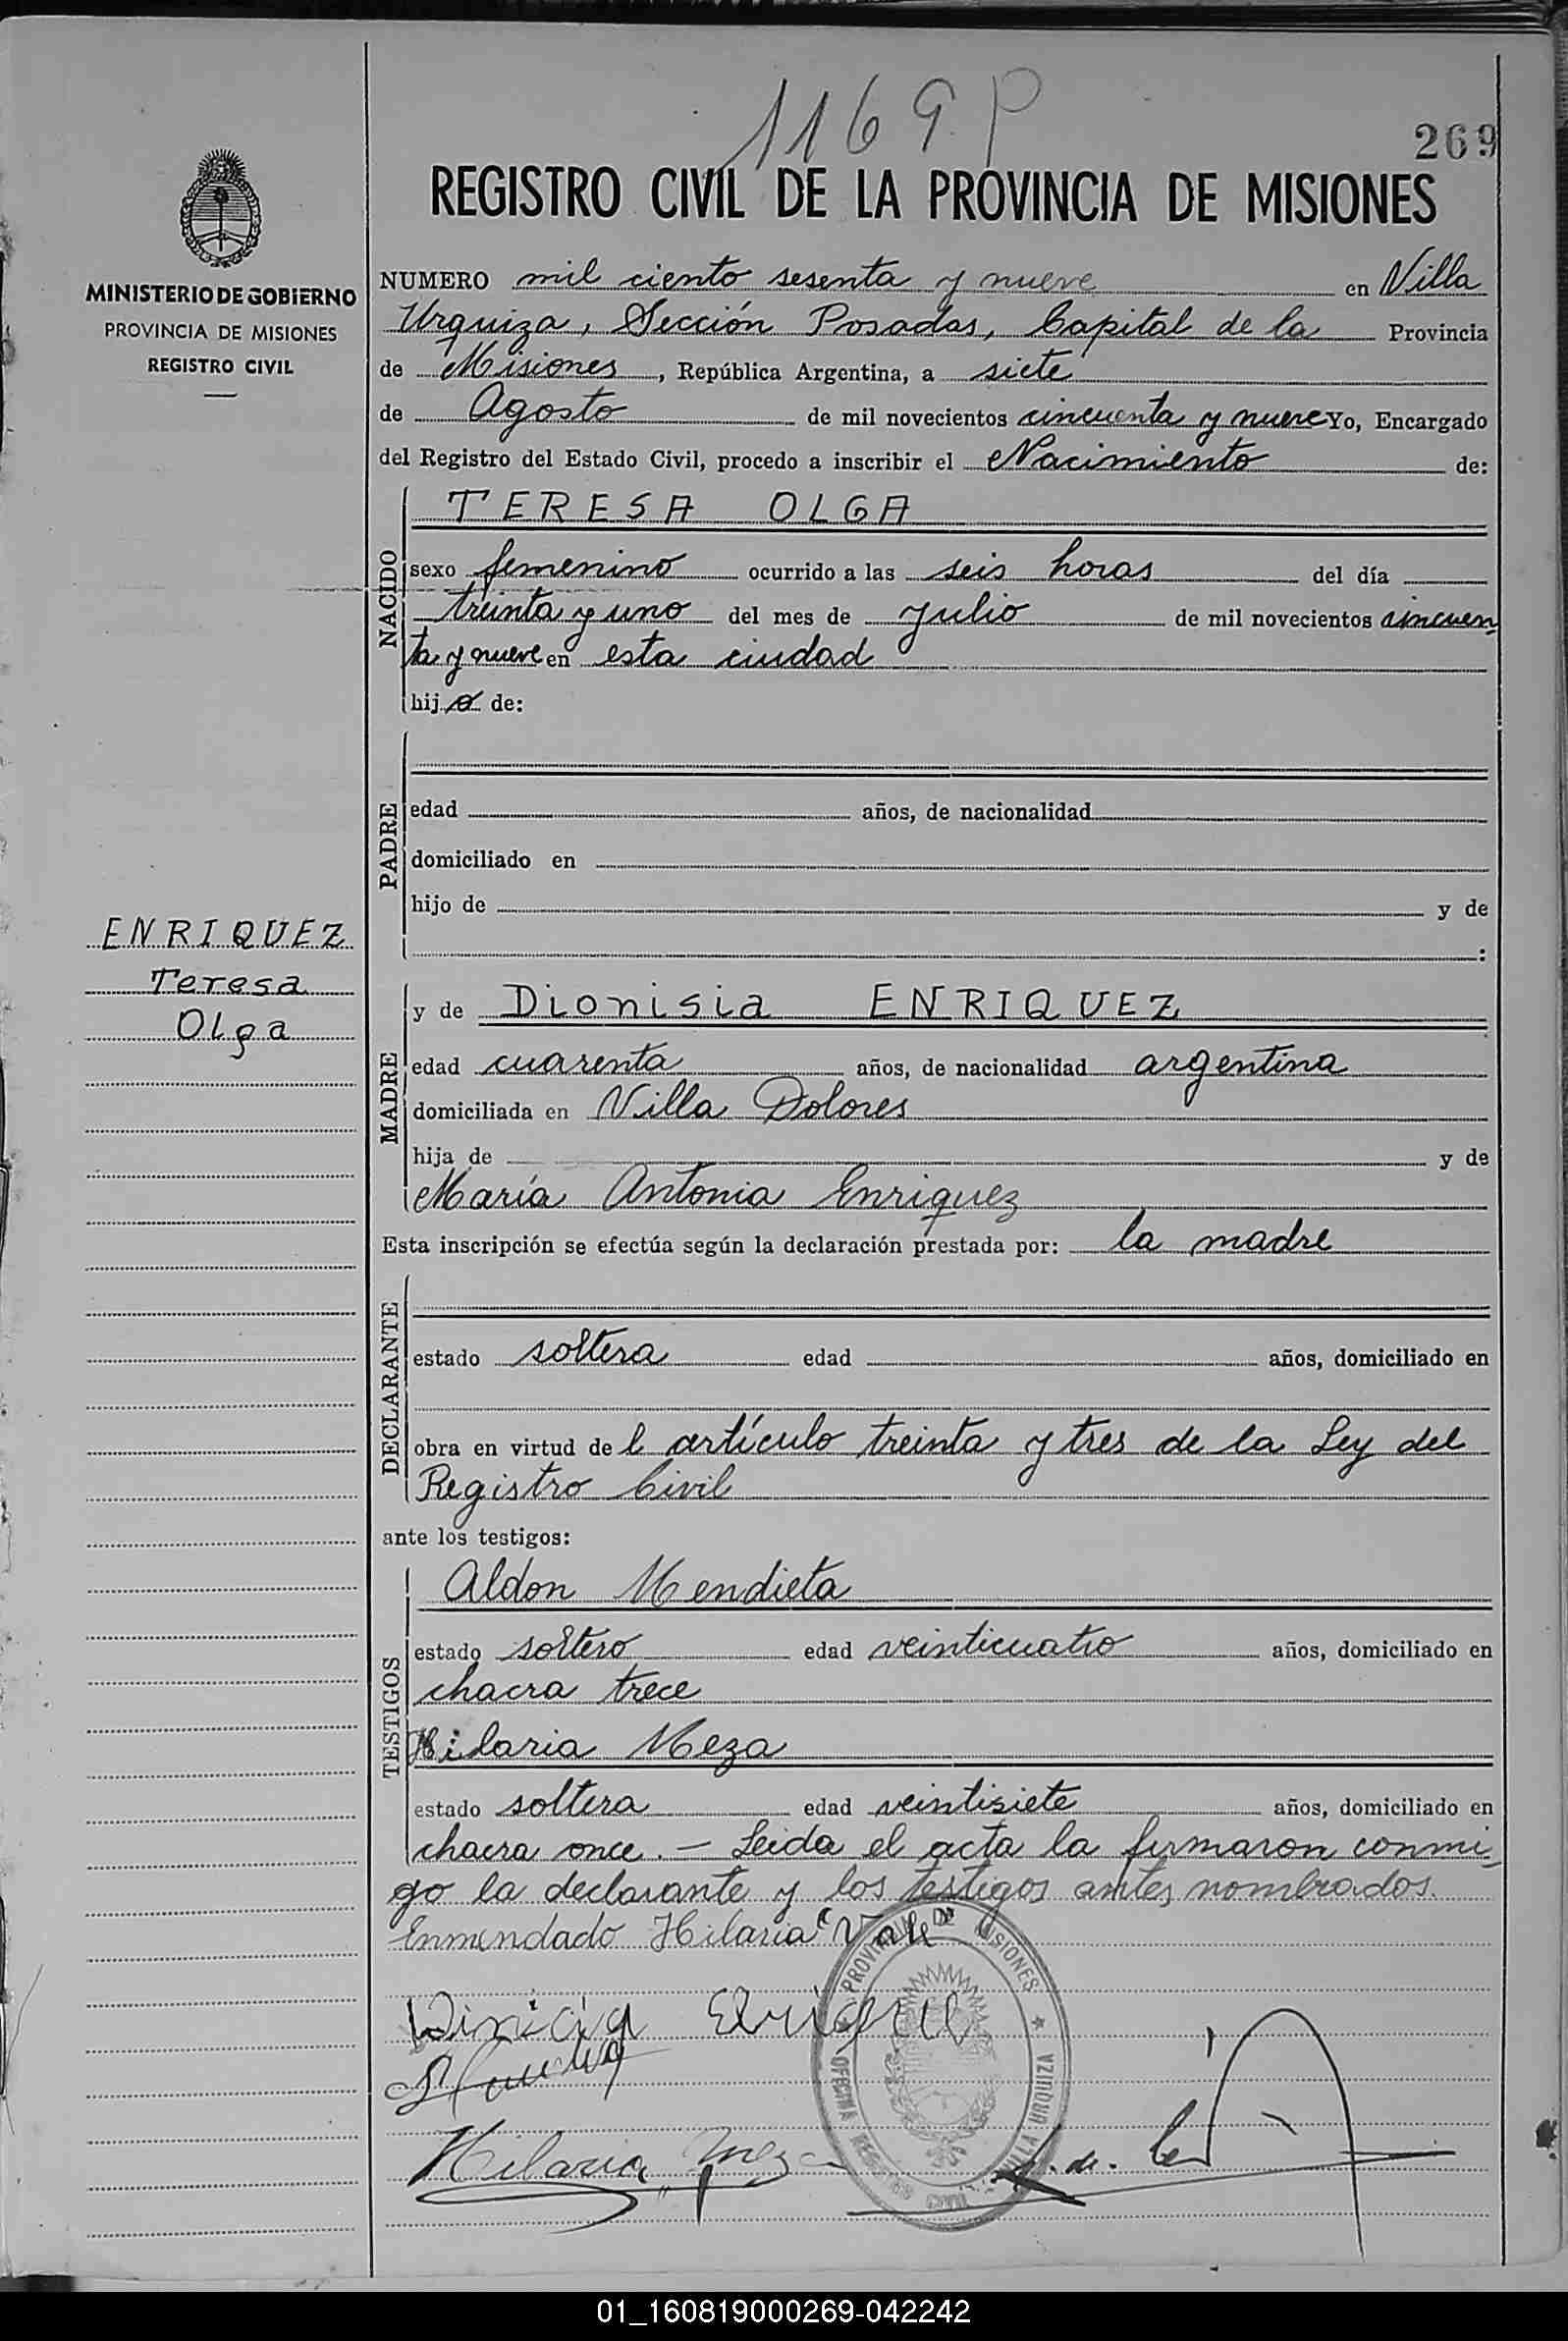 1169 P
269
REGISTRO CIVIL DE LA PROVINCIA DE MISIONES
MINISTERIO DE GOBIERNO
PROVINCIA DE MISIONES
REGISTRO CIVIL
NUMERO mil ciento sesenta y nueve en Villa
Urquiza, Sección Posadas, Capital de la Provincia
de Misiones, República Argentina, a siete
de Agosto de mil novecientos cincuenta y nueve Yo, Encargado
del Registro del Estado Civil, procedo a inscribir el Nacimiento de:
NACIDO
TERESA OLGA
sexo femenino ocurrido a las seis horas del día
treinta y uno del mes de julio de mil novecientos cincuen
ta y nueve en esta ciudad
hija de:
PADRE
edad años, de nacionalidad
domiciliado en
hijo de y de
:
ENRIQUEZ
Teresa
Olga
MADRE
y de Dionisia ENRIQUEZ
edad cuarenta años, de nacionalidad argentina
domiciliada en Villa Dolores
hija de y de
María Antonia Enriquez
Esta inscripción se efectúa según la declaración prestada por: la madre
DECLARANTE
estado soltera edad años, domiciliado en
obra en virtud del artículo treinta y tres de la Ley del
Registro Civil
ante los testigos:
TESTIGOS
Aldon Mendieta
estado soltero edad veinticuatro años, domiciliado en
chacra trece
Hilaria Meza
estado soltera edad veintisiete años, domiciliado en
chacra once. - Leida el acta la firmaron conmi-
go la declarante y los testigos antes nombrados.
Enmendado Hilaria "Vale"
PROVINCIA DE MISIONES
OFICINA REGISTRO CIVIL VILLA URQUIZA
Hilaria Meza
01_160819000269-042242